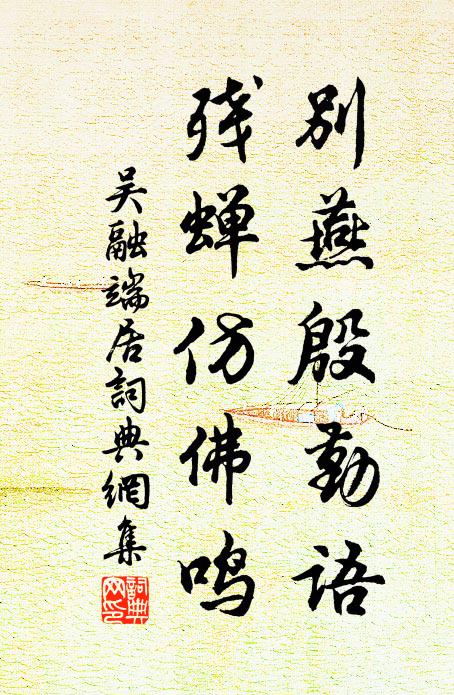 别燕殷勤语
残蝉仿佛鸣
吴融端居詞典網集
詞典网印